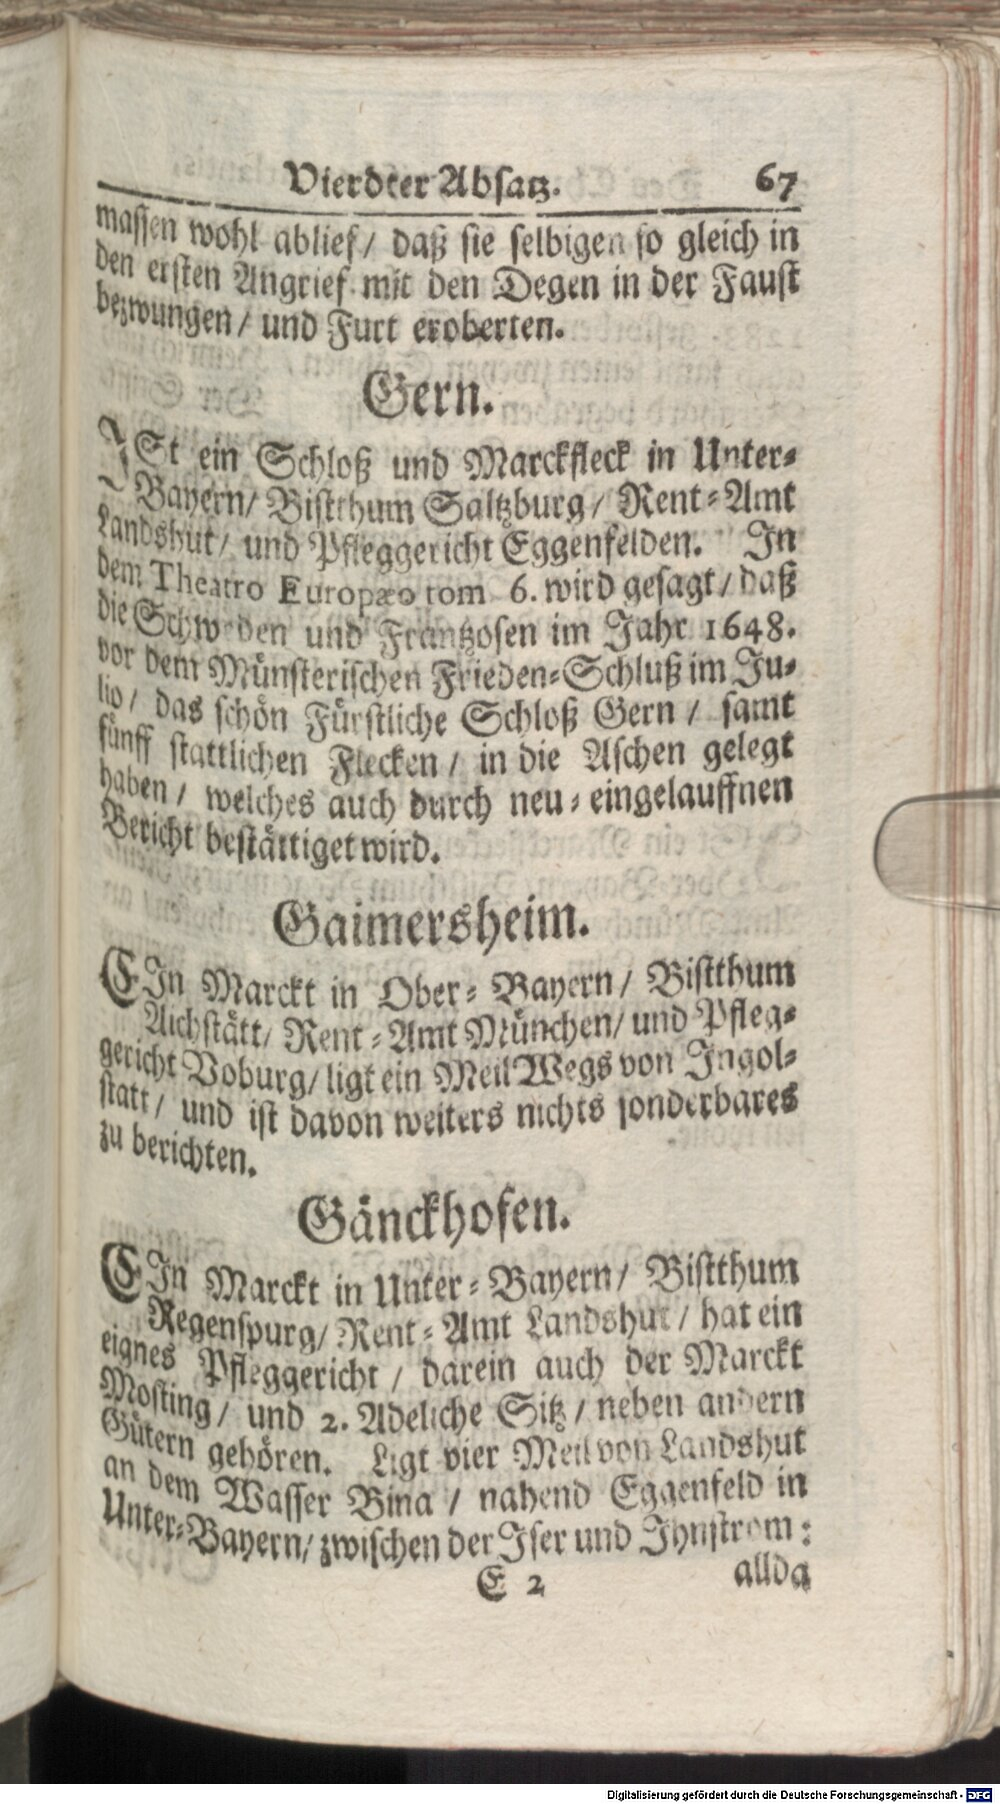 Vierdter Absatz. 67
massen wohl ablief / daß sie selbigen so gleich in
den ersten Angrief mit den Degen in der Faust
bezwungen / und Furt eroberten.
Gern.
ISt ein Schloß und Marckfleck in Unter-
Bayern / Bistthum Saltzburg / Rent-Amt
Landshut / und Pfleggericht Eggenfelden. In
dem Theatro Europæo tom 6. wird gesagt / daß
die Schweden und Frantzosen im Jahr 1648.
vor dem Münsterischen Frieden-Schluß im Ju-
lio / das schön Fürstliche Schloß Gern / samt
fünff stattlichen Flecken / in die Aschen gelegt
haben / welches auch durch neu-eingelauffnen
Bericht bestättiget wird.
Gaimersheim.
EIn Marckt in Ober-Bayern / Bistthum
Aichstätt / Rent-Amt München / und Pfleg-
gericht Voburg / ligt ein Meil Wegs von Ingol-
statt / und ist davon weiters nichts sonderbares
zu berichten.
Gänckhofen.
EIn Marckt in Unter-Bayern / Bistthum
Regenspurg / Rent-Amt Landshut / hat ein
eignes Pfleggericht / darein auch der Marckt
Mosting / und 2. Adeliche Sitz / neben andern
Gütern gehören. Ligt vier Meil von Landshut
an dem Wasser Bina / nahend Eggenfeld in
Unter-Bayern / zwischen der Iser und Ihnstrom:
E 2 allda
Digitalisierung gefördert durch die Deutsche Forschungsgemeinschaft - DFG